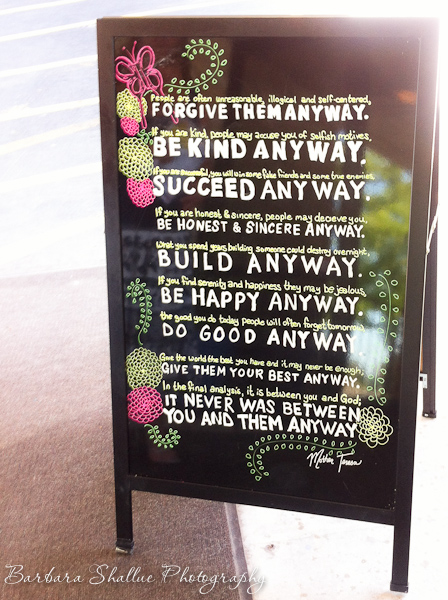 People are often unreasonable, illogical and self-centered,
FORGIVE THEM ANYWAY.
If you are kind, people may accuse you of selfish motives,
BE KIND ANYWAY.
If you are successful, you will win some fake friends and some true enemies,
SUCCEED ANYWAY.
If you are honest & sincere, people may deceive you,
BE HONEST & SINCERE ANYWAY.
What you spend years building someone could destroy overnight,
BUILD ANYWAY.
If you find serenity and happiness they may be jealous,
BE HAPPY ANYWAY.
the good you do today people will often forget tomorrow
DO GOOD ANYWAY
Give the world the best you have and it may never be enough,
GIVE THEM YOUR BEST ANYWAY.
In the final analysis, it is between you and God;
IT NEVER WAS BETWEEN
YOU AND THEM ANYWAY
Mother Teresa
Barbara Shallue Photography